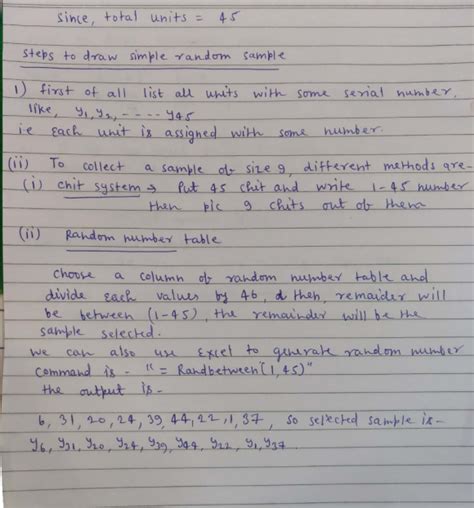 Since, total units = 45
Steps to draw simple random sample
1) first of all list all units with some serial number.
like, y1, y2, ---- y45
i.e each unit is assigned with some number.
(ii) To collect a sample of size 9, different methods are-
(i) chit system → Put 45 chit and write 1-45 number
then pic 9 chits out of them
(ii) Random number table
Choose a column of random number table and
divide each values by 46, & then, remaider will
be between (1-45), the remainder will be the
sample selected.
we can also use Excel to generate random number
Command is - "= Randbetween(1,45)"
the output is -
6, 31, 20, 24, 39, 44, 22, 1, 37, so selected sample is-
y6, y31, y20, y24, y39, y44, y22, y1, y37.